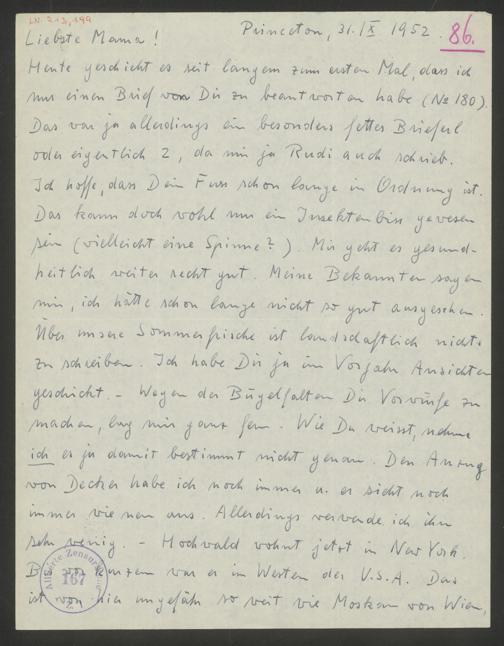 LN. 213,199
Princeton, 31. IX 1952. 86.
Liebste Mama!
Heute geschieht es seit langem zum ersten Mal, dass ich
nur einen Brief von Dir zu beantworten habe (No 180).
Das war ja allerdings ein besonders fettes Brieferl
oder eigentlich 2, da mir ja Rudi auch schrieb.
Ich hoffe, dass Dein Fuss schon lange in Ordnung ist.
Das kann doch wohl nur ein Insektenbiss gewesen
sein (vielleicht eine Spinne?). Mir geht es gesund-
heitlich weiter recht gut. Meine Bekannten sagen
mir, ich hätte schon lange nicht so gut ausgesehen.
Über unsere Sommerfrische ist landschaftlich nichts
zu schreiben. Ich habe Dir ja im Vorjahr Ansichten
geschickt. - Wegen der Bügelfalten Dir Vorwürfe zu
machen, lag mir ganz fern. Wie Du weisst, nehme
ich es ja damit bestimmt nicht genau. Den Anzug
von Decker habe ich noch immer u. er sieht noch
immer wie neu aus. Allerdings verwende ich ihn
sehr wenig - Hochwald wohnt jetzt in New York.
war er im Westen der U.S.A. Das
ist von hier ungefähr so weit wie Moskau von Wien,
Alliierte Zensurstelle
167